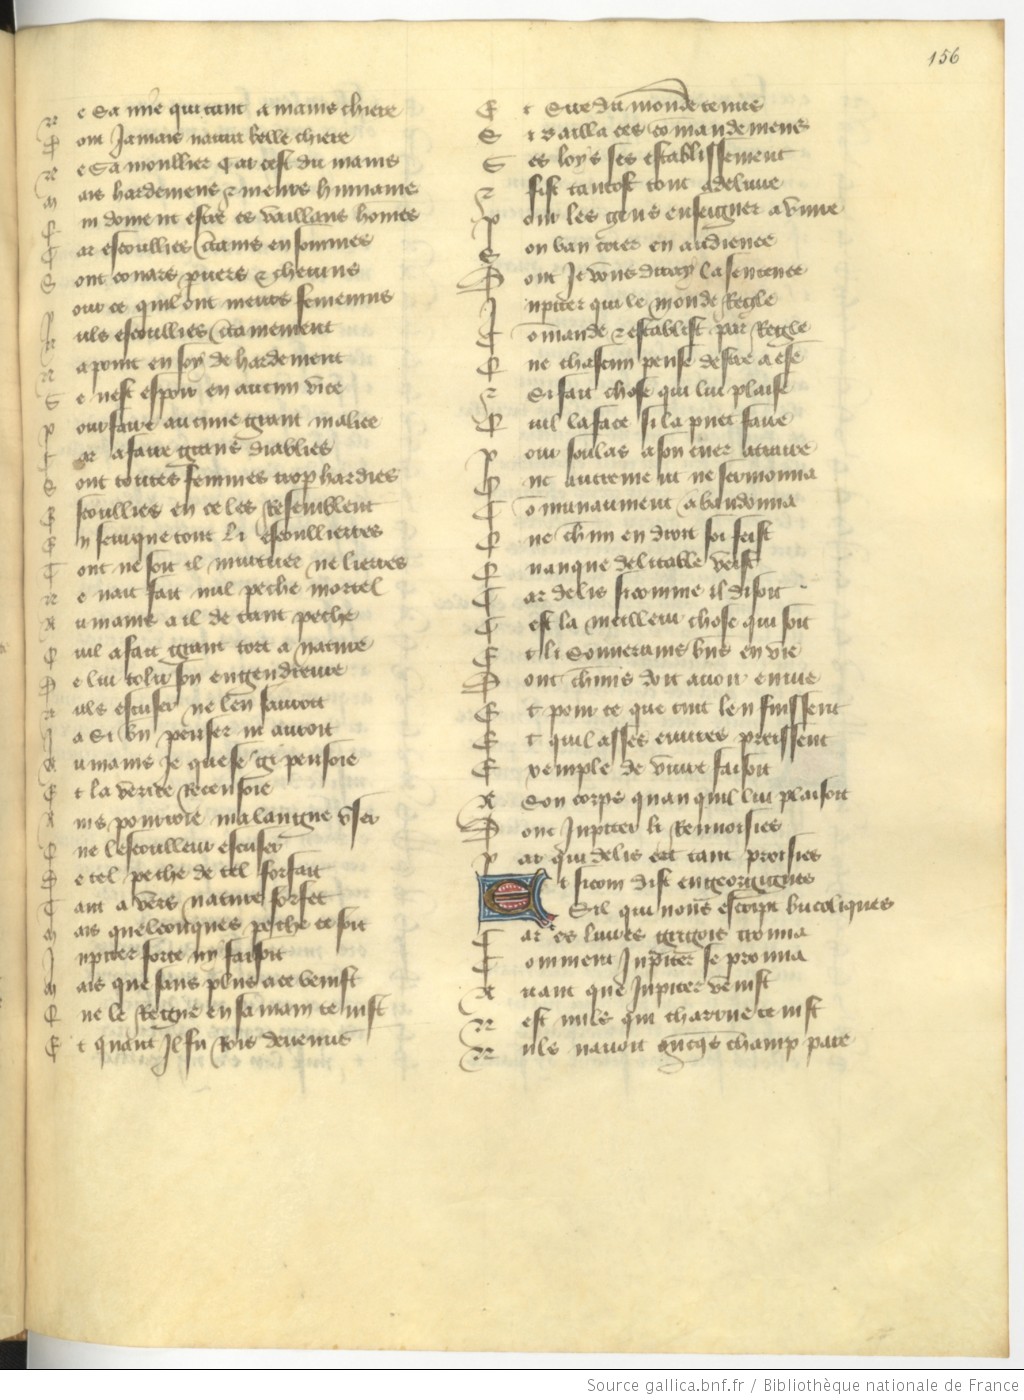 156
Ne Sa mie qui tant a mains chiere
Pont Jamais natur belle chiere
Ne Sa moullier Car cest du mains
Mais hardemens & meurs humains
Qui doivent estre es vaillans homes
Car escoullies certains en sommes
Sont couars pvers & chetius
Pour ce quil ont meurs femenins
Nuls escoullies certainement
Na point en soy de hardement
Se nest espoir en aucun vice
Pour faire aucune grant malice
Car a faire grans diablies
Sont toutes femmes trop hardies
Escoullies en ce les Resemblent
En seurque tout li escoullierres
Tont ne soit il murtrier ne lierres
Ne nait fait nul peche mortel
Au mains a il de tant peche
Quil a fait grant tort a nature
De lui tolir son engendreure
Nuls escuser ne len sauroit
Ja Si bn penser ni auroit
Au mains Je que se gi pensoie
Et la verite Recensoie
Ains pourroie ma langue vser
Que lescoulleur escuser
De tel peche de tel forfait
Tant a vers nature forfet
Mais quelconques peche ce soit
Jupiter force ny faisoit
Mais que sans plus a ce venist
Que le Regne en sa main tenist
Et quant Il fu Rois deuenus
Et Sire du monde tenus
Si bailla ces comandemens
Ses loys ses establissement
& fist tantost tout a deliure
Pour les gens enseigner a viure
Son ban crier en audience
Dont Je vous diray la sentence
Jupiter qui le monde Regle
Comande & establist par Regle
Que chascun pense destre a ese
& Si fait chose qui lui plaise
Quil la face si la puet faire
Pour soulas a son cuer attraire
Onc autrement ne sermonna
Comunaument abandonna
Que chun en droit soi feist
Quanque delitable veist
Car delis si comme il disoit
Cest la meilleur chose qui soit
Et li Souuerains bns en vie
Dont chuns doit auoir enuie
Et pour ce que tuit len suissent
Et quil a ses euures preissent
Exemple de viure faisoit
A Son corps quanquil lui plaisoit
Dont Jupiter li Renuoisies
Par qui delis ert tant proisies
Et sicom dist en georgiques
Sil qui nous escript bucoliques
Car es liures gregois trouua
Comment Jupiter se prouua
Auant que Jupiter venist
Nest nuls qui charrue tenist
Nuls nauoit oncqs champ pare